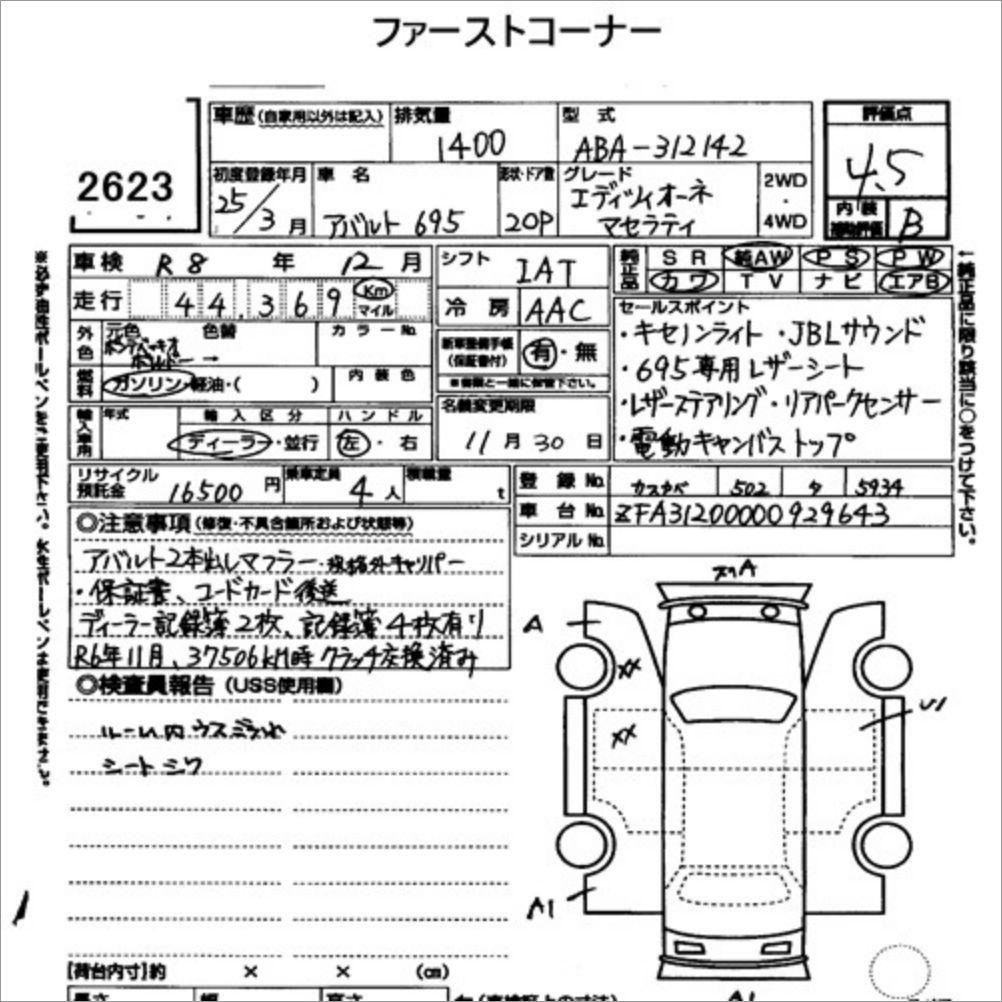 ファーストコーナー
2623
車歴(自家用以外は記入) 排気量 1400 型式 ABA-312142
初度登録年月 25/3月 車名 アバルト 695 形状・ドア数 2DP グレード エディツィオーネ マセラティ 2WD・4WD
評価点 4.5
内装補助評価 B
車検 R8年12月
走行 44,369 Km マイル
シフト IAT
冷房 AAC
純正品 SR 純AW PS PW
カワ TV ナビ エアB
外色 元色 色替 カラーNo.
ボルドー →
燃料 ガソリン・軽油・( ) 内装色
輸入車用 年式 輸入区分 ディーラー・並行 ハンドル 左・右
新車整備手帳(保証書付) 有・無
※書類と一緒に保管下さい。
名義変更期限
11月30日
セールスポイント
・キセノンライト ・JBLサウンド
・695専用レザーシート
・レザーステアリング・リアパークセンサー
・電動キャンバストップ
リサイクル預託金 16500円 乗車定員 4人 積載量 t
登録No. カスカベ 502 タ 5934
車台No. ZFA31200000929643
シリアルNo.
◎注意事項(修復・不具合箇所および状態等)
アバルト2本出しマフラー・規格外キャリパー
・保証書、コードカード後送
ディーラー記録簿2枚、記録簿4枚有り
R6年11月、37506kM時クラッチ交換済み
◎検査員報告(USS使用欄)
シートシワ
A
A
XX
XX
U1
A1
A1
【荷台内寸】約 × × (cm)
長さ 幅 高さ
↑純正品に限り該当に○をつけて下さい。